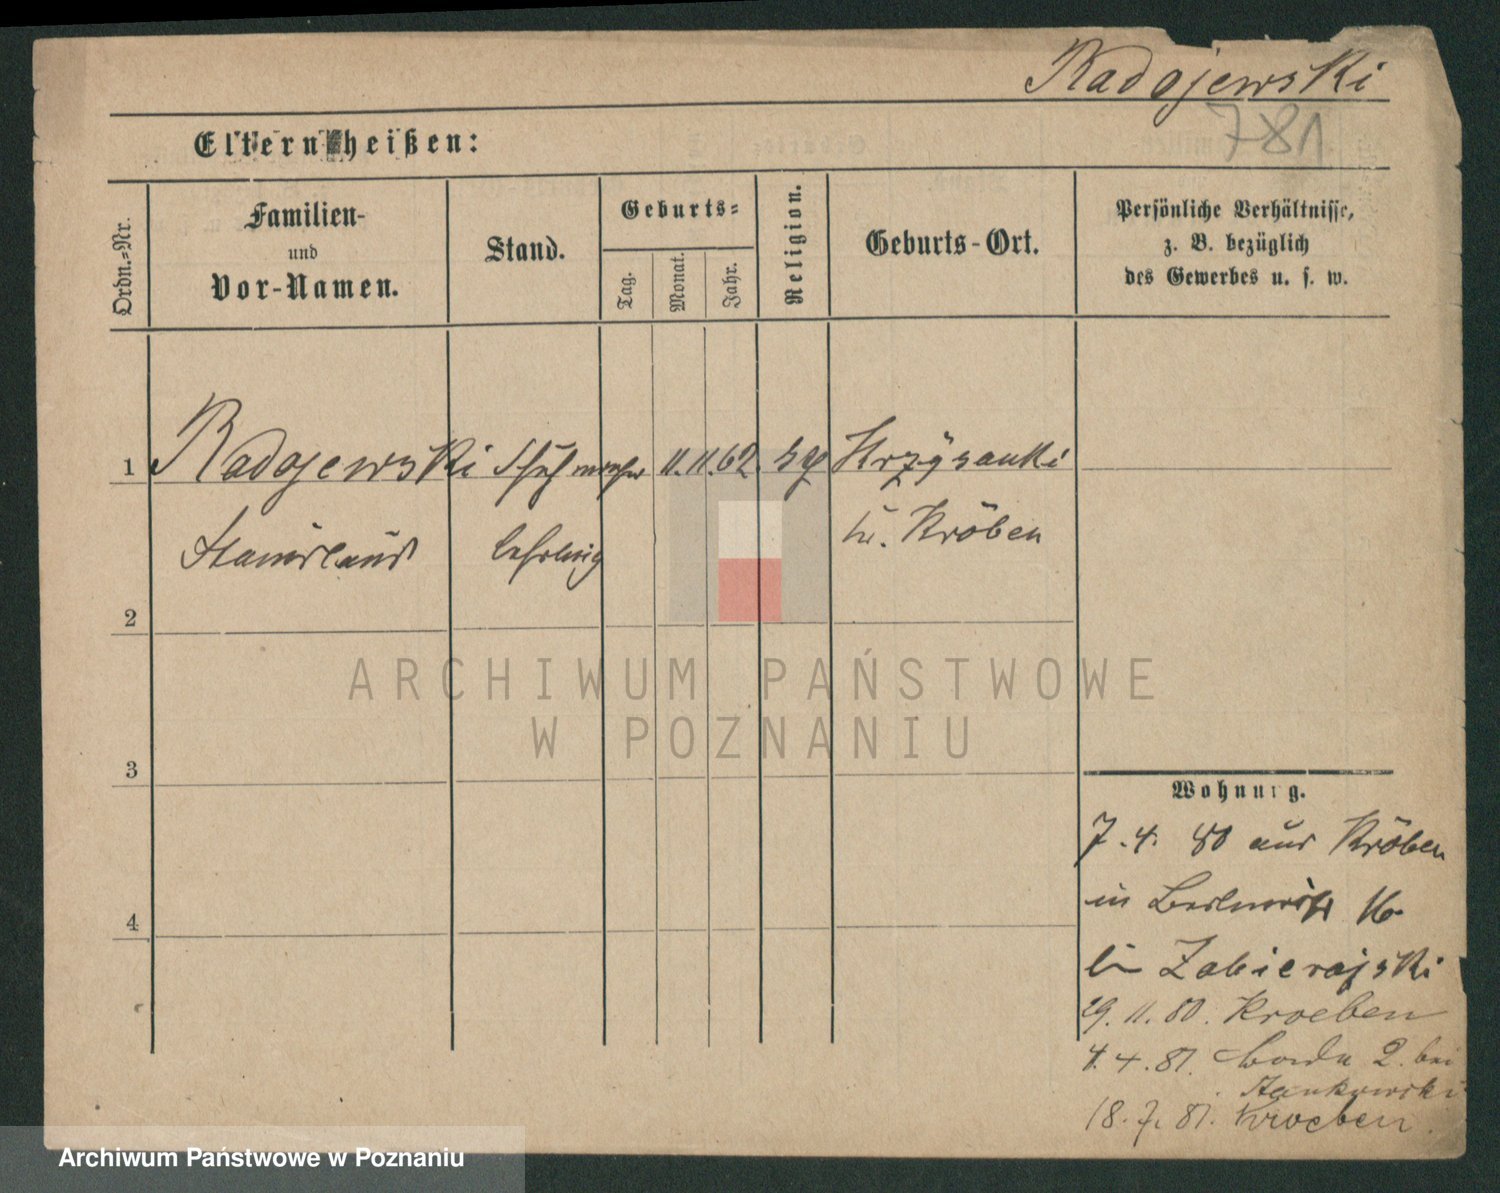 Radojewski
781
Eltern heißen:
Ordn.-Nr.
Familien-
und
Vor-Namen.
Stand.
Geburts-
Tag.
Monat.
Jahr.
Religion.
Geburts-Ort.
Persönliche Verhältnisse,
z. B. bezüglich
des Gewerbes u. s. w.
1
Radojewski Schuhmacher 11. 11. 62.
Stanislaus
bei Kröben
2
3
4
Wohnung.
7. 4. 80 aus Kröben
in 16
bei Zabierajski
29. 11. 80. Kroeben
4. 4. 81. 2. bei
Stankowski
18. 7. 81. Kroeben.
ARCHIWUM PAŃSTWOWE
W POZNANIU
Archiwum Państwowe w Poznaniu